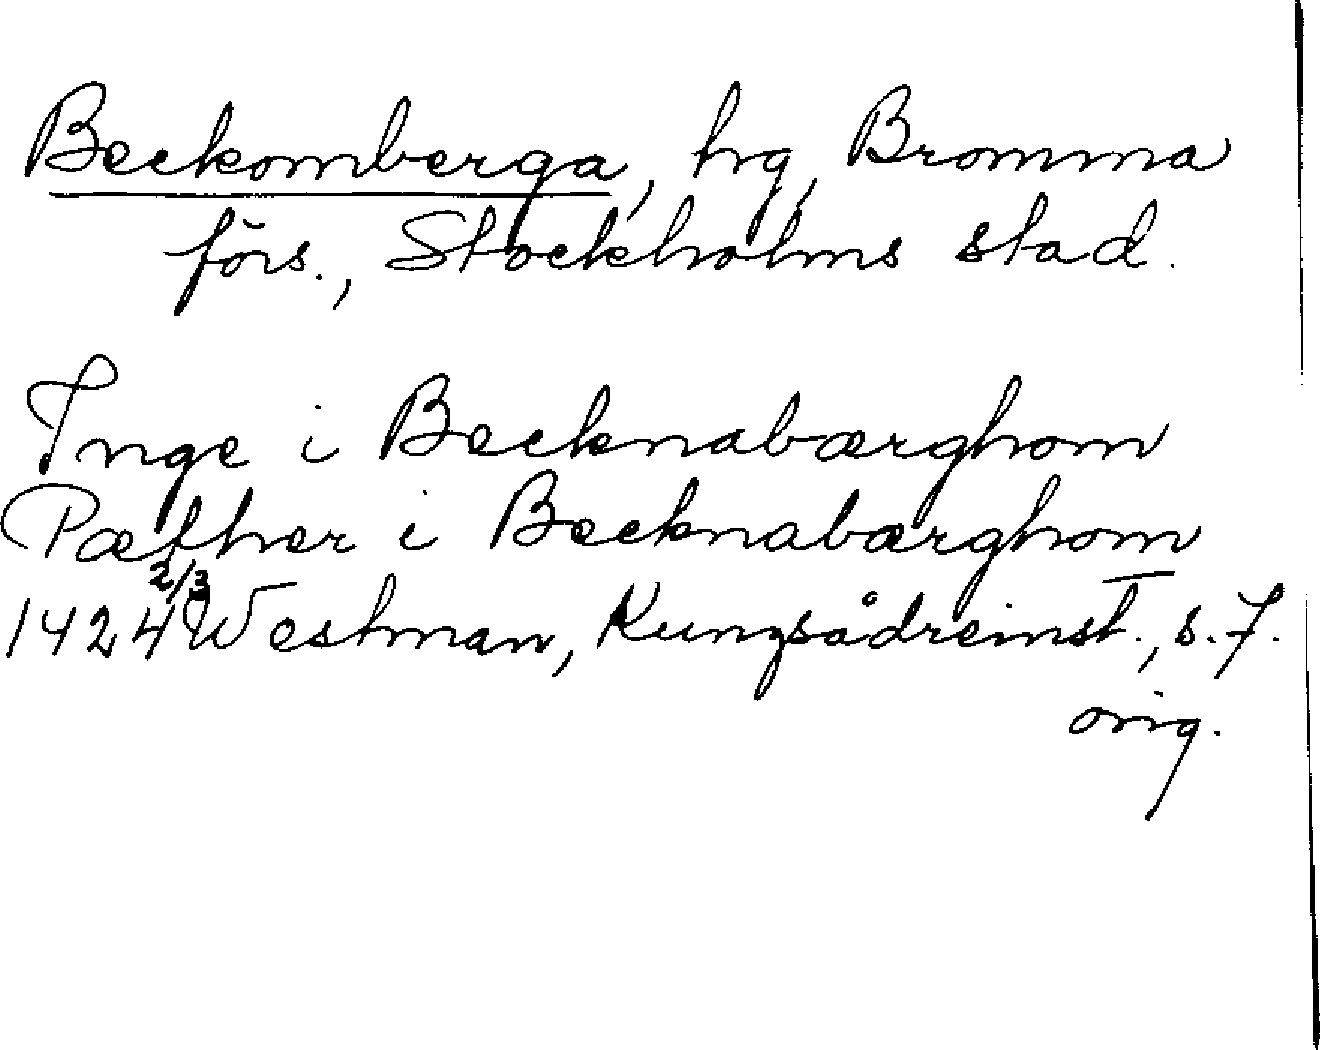 Beckomberga, hg, Bromma
förs., Stockholms stad.
Inge i Becknabærghom
Pæthær i Becknabærghom
1424 2/3 Westman, Kungsådreinst., s. 7.
orig.